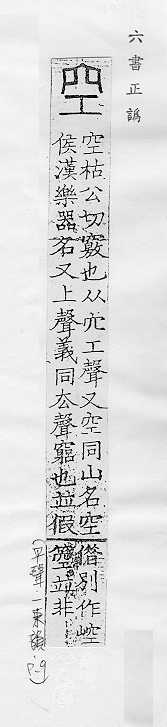 六書正譌
空
空枯公切竅也从穴工聲又空同山名空
侯漢樂器名又上聲義同厺聲窮也並假
借別作崆
箜並非
(平聲一東韻 P.9)